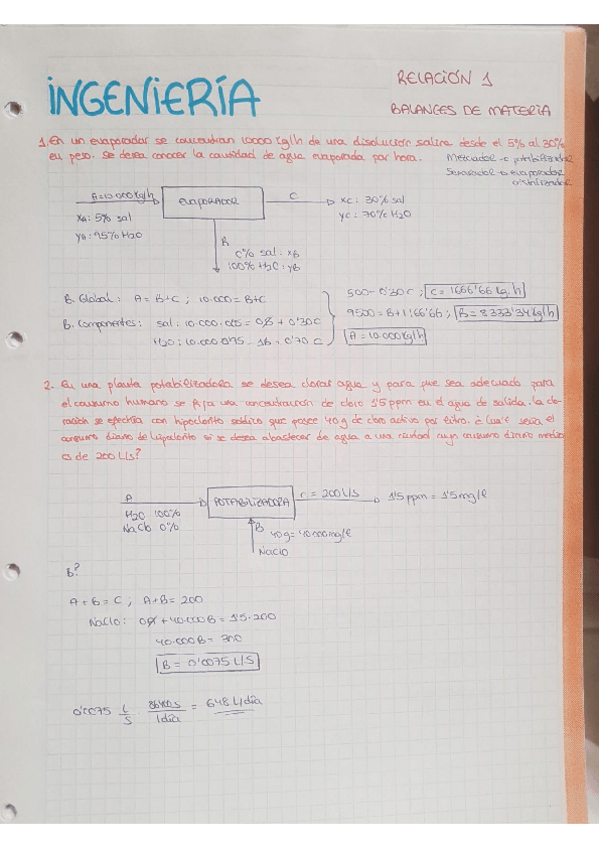 INGENIERÍA
RELACIÓN 1
BALANCES DE MATERIA
1. En un evaporador se concentran 10000 Kg/h de una disolución salina desde el 5% al 30%
en peso. Se desea conocer la cantidad de agua evaporada por hora.
Mezclador → potabilizador
Separador → evaporador
A=10.000Kg/h
EVAPORADOR
C
xA: 5% sal
yA: 95% H2O
xC: 30% sal
yC: 70% H2O
B
0% sal: xB
100% H2O: yB
B. Global: A = B+C ; 10.000 = B+C
B. Componentes: sal: 10.000·0'05 = 0B + 0'30C
H2O: 10.000·0'95 = 1B + 0'70C
500 = 0'30C ; C = 1666'66 Kg/h
9500 = B + 1166'66 ; B = 8333'34 Kg/h
A = 10.000Kg/h
2. En una planta potabilizadora se desea clorar agua y para que sea adecuado para
el consumo humano se fija una concentración de cloro 1'5 ppm en el agua de salida. La clo-
ración se efectúa con hipoclorito sódico que posee 40g de cloro activo por litro. ¿Cuál sería el
consumo diario de hipoclorito si se desea abastecer de agua a una ciudad cuyo consumo diario medio
es de 200 L/s?
A
H2O 100%
NaClO 0%
POTABILIZADORA
C = 200 L/S
1'5 ppm = 1'5 mg/l
B
40g = 40000mg/l
NaClO
B?
A + B = C ; A+B = 200
NaClO: 0A + 40.000B = 1'5·200
40.000B = 300
B = 0'0075 L/S
0'0075 L/S · 86400s/1día = 648 L/día